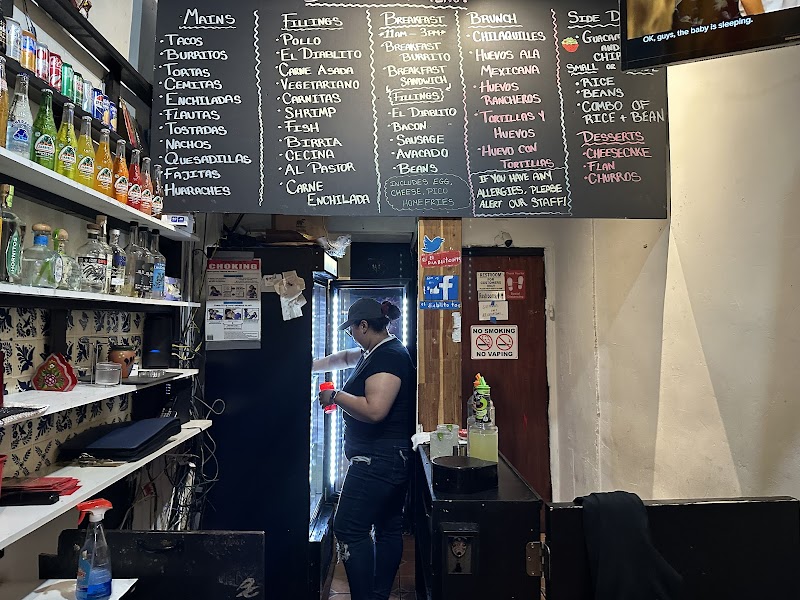 MAINS
TACOS
BURRITOS
TORTAS
CEMITAS
ENCHILADAS
FLAUTAS
TOSTADAS
NACHOS
QUESADILLAS
FAJITAS
HUARACHES
FILLINGS
POLLO
EL DIABLITO
CARNE ASADA
VEGETARIANO
CARNITAS
SHRIMP
FISH
BIRRIA
CECINA
AL PASTOR
CARNE
ENCHILADA
BREAKFAST
11AM - 3PM
BREAKFAST
BURRITO
BREAKFAST
SANDWICH
(FILLINGS)
EL DIABLITO
BACON
SAUSAGE
AVACADO
BEANS
INCLUDES EGG,
CHEESE, PICO
HOMEFRIES
BRUNCH
CHILAQUILLES
HUEVOS ALA
MEXICANA
HUEVOS
RANCHEROS
TORTILLAS Y
HUEVOS
HUEVO CON
TORTILLAS
IF YOU HAVE ANY
ALLERGIES, PLEASE
ALERT OUR STAFF!
SIDE D
GUACAM
AND
CHIP
SMALL OR
RICE
BEANS
COMBO OF
RICE + BEAN
DESSERTS
CHEESECAKE
FLAN
CHURROS
OK, guys, the baby is sleeping.
CHOKING
RESTROOM
NO SMOKING
NO VAPING